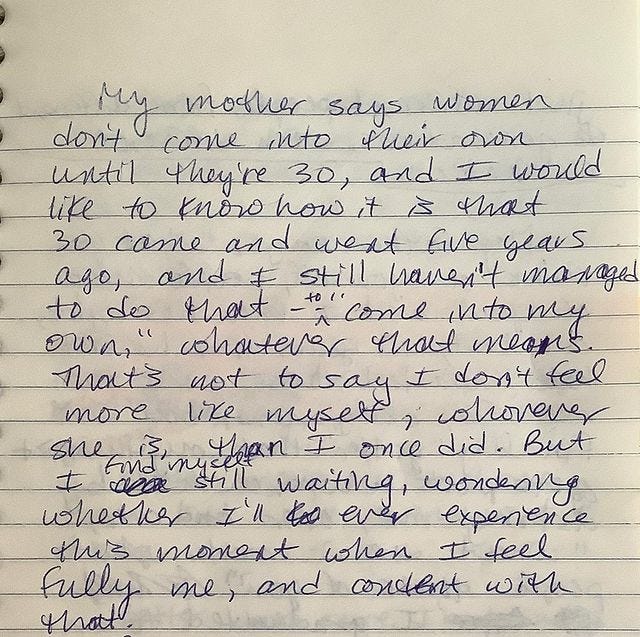 My mother says women
don't come into their own
until they're 30, and I would
like to know how it is that
30 came and went five years
ago, and I still haven't managed
to do that - to "come into my
own," whatever that means.
That's not to say I don't feel
more like myself, whoever
she is, than I once did. But
I find myself still waiting, wondering
whether I'll ever experience
this moment when I feel
fully me, and content with
that.